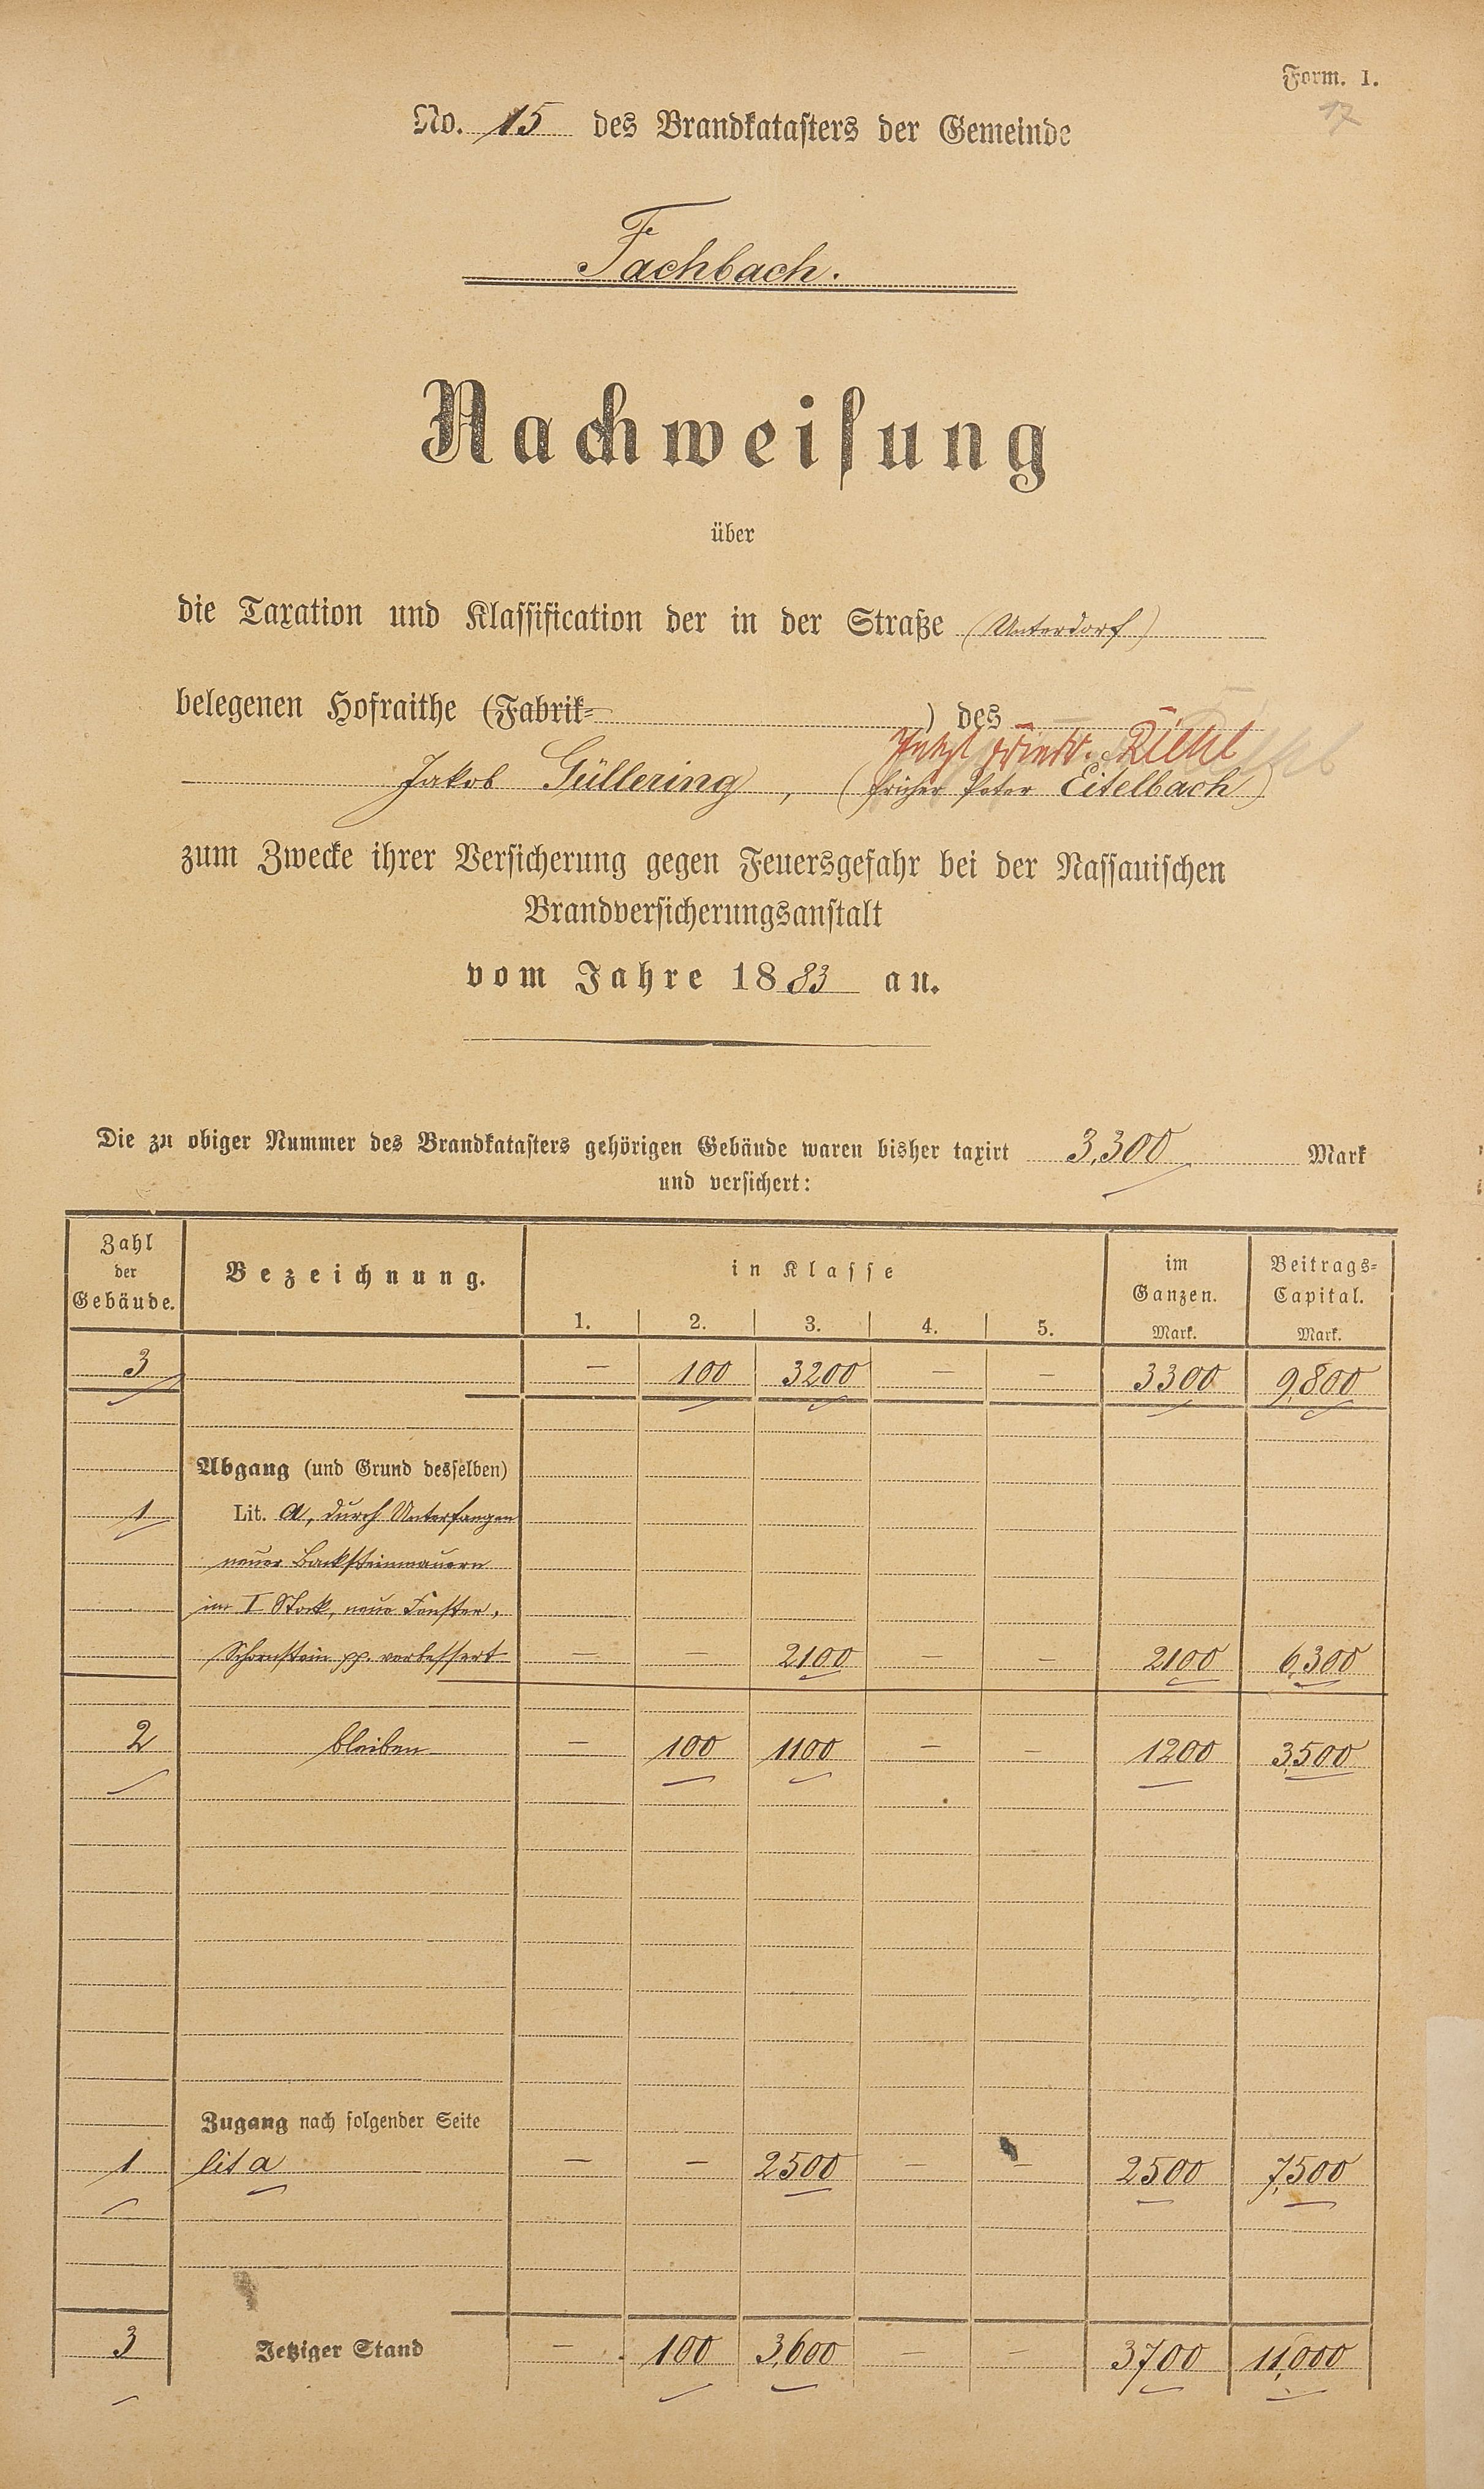 Form. I.
17
No. 15 des Brandkatasters der Gemeinde
Fachbach.
Nachweisung
über
die Taxation und Klassification der in der Straße (Unterdorf)
belegenen Hofraithe (Fabrik- ) des
Jetzt Friedr. Diehl
Jakob Güllering, (früher Peter Eitelbach)
zum Zwecke ihrer Versicherung gegen Feuersgefahr bei der Nassauischen
Brandversicherungsanstalt
vom Jahre 1883 an.
Die zu obiger Nummer des Brandkatasters gehörigen Gebäude waren bisher taxirt 3,300 Mark
und versichert:
Zahl der Gebäude. Bezeichnung. in Klasse im Ganzen. Beitrags-Capital.
1. 2. 3. 4. 5. Mark. Mark.
3 — 100 3200 — — 3300 9,800
Abgang (und Grund desselben)
1 Lit. a, durch Unterfangen
neuer Backsteinmauern
im I Stock, neue Fenster,
Schornstein pp. verbessert — — 2100 — — 2100 6,300
2 bleiben — 100 1100 — — 1200 3,500
Zugang nach folgender Seite
1 lit a — — 2500 — — 2500 7,500
3 Jetziger Stand — 100 3,600 — — 3700 11,000